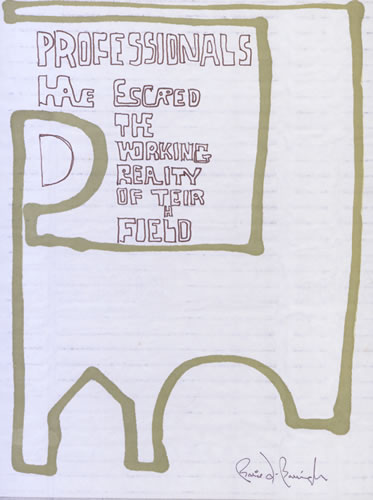 PROFESSIONALS
HAVE ESCAPED
THE
D
WORKING
REALITY
OF TEIR
H
FIELD